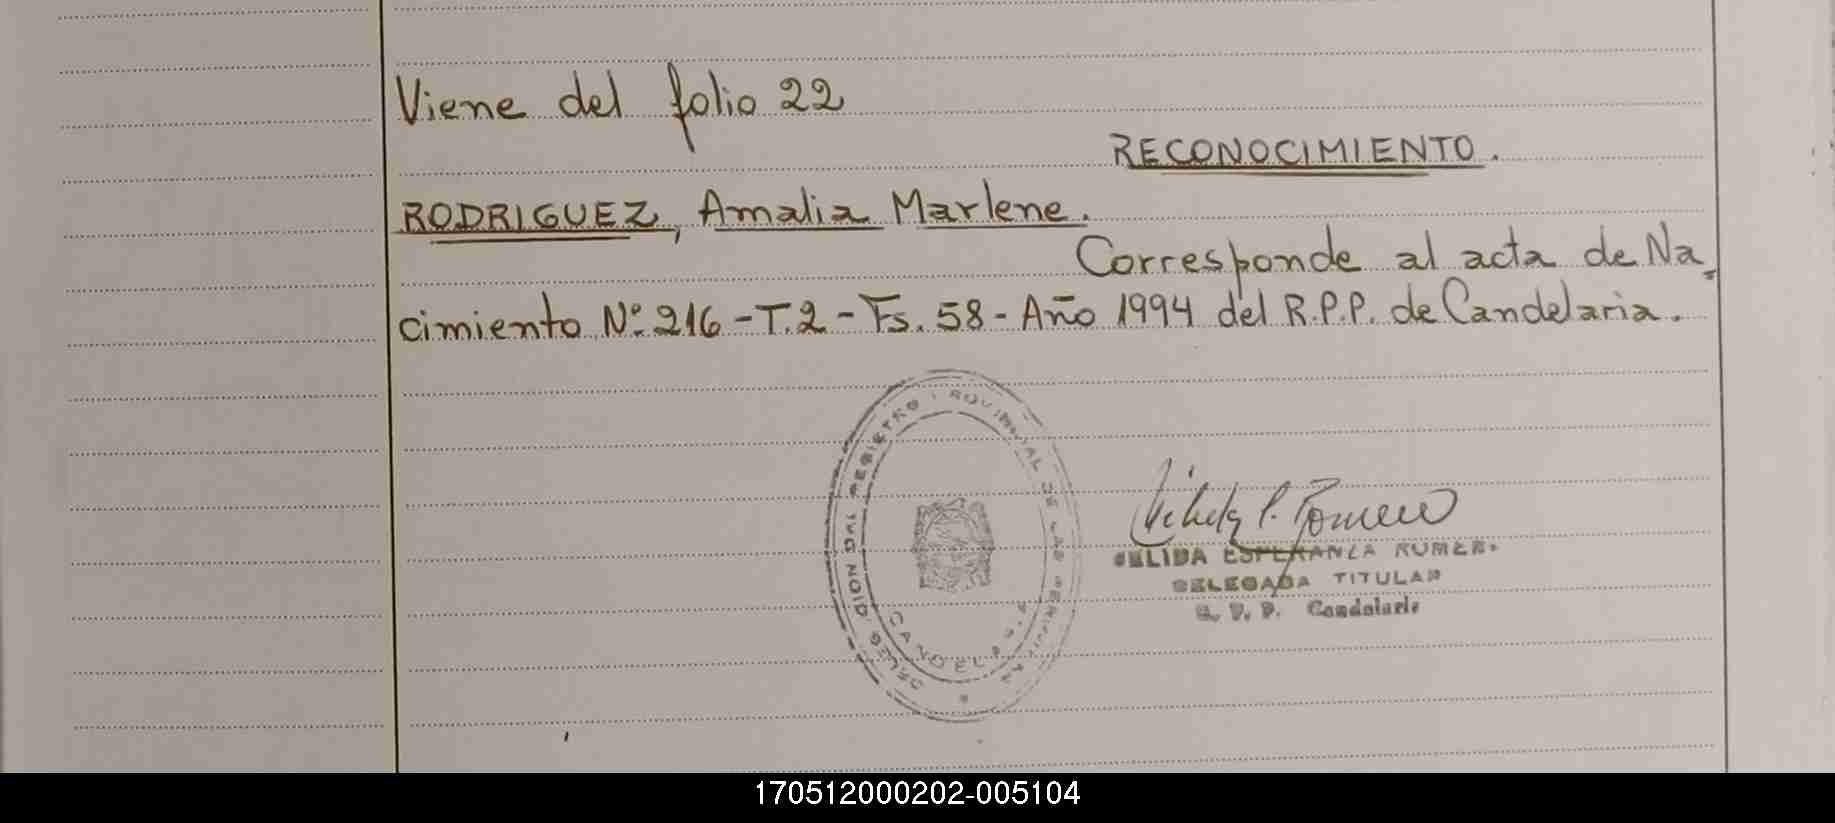 Viene del folio 22
RECONOCIMIENTO.
RODRIGUEZ, Amalia Marlene.
Corresponde al acta de Na
cimiento Nº 216 - T.2 - Fs. 58 - Año 1994 del R.P.P. de Candelaria.
REGISTRO PROVINCIAL DE LAS PERSONAS
ESPERANZA ROMERO
DELEGADA TITULAR
R. P. P. Candelaria
170512000202-005104